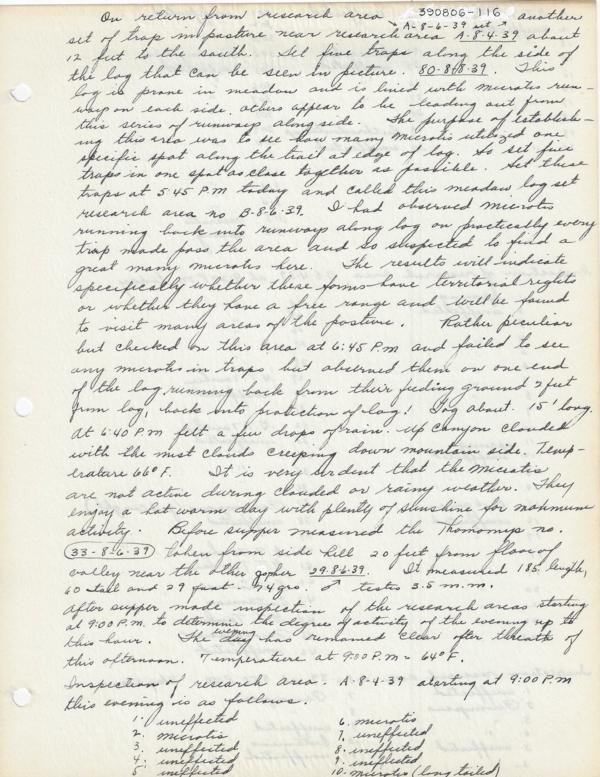 390806-116
On return from research area A-8-6-39 set another
set of traps in pasture near research area A-8-4-39 about
12 feet to the south. Set five traps along the side of
the log that can be seen in picture. 80-8/8-39. This
log is prone in meadow and is lined with microtis run-
ways on each side, others appear to be leading out from
this series of runways alongside. The purpose of establish-
ing this area was to see how many microtis utilized one
specific spot along the trail at edge of log. So set five
traps in one spot as close together as possible. Set these
traps at 5:45 P.M today and called this meadow log set
research area no B-8-6-39. I had observed microtis
running back into runways along log on practically every
trip made pass the area and so suspected to find a
great many microtis here. The results will indicate
specifically whether these forms have territorial rights
or whether they have a free range and will be found
to visit many areas of the pasture. Rather peculiar
but checked on this area at 6:45 P.M and failed to see
any microtis in traps but observed them on one end
of the log running back from their feeding ground 2 feet
from log, back into protection of log! Log about 15' long.
At 6:40 P.M felt a few drops of rain. Up canyon clouded
with the mist clouds creeping down mountain side. Temp-
erature 66° F. It is very evident that the microtis
are not active during clouded or rainy weather. They
enjoy a hot warm day with plenty of sunshine for
activity. Before supper measured the Thomomys no.
33-8-6-39 taken from side hill 20 feet from floor of
valley near the other gopher 29-8-6-39. It measured 185 length,
60 tail and 29 foot. 74 grs. ♂ testes 3.5 m.m.
After supper made inspection of the research areas starting
at 9:00 P.M. to determine the degree of activity of the evening up to
this hour. The evening day has remained clear after threath of
this afternoon. Temperature at 9:00 P.M = 64° F.
Inspection of research area: A-8-4-39 starting at 9:00 P.M
this evening is as follows.
1. uneffected
2. microtis
3. uneffected
4. uneffected
5 uneffected
6. microtis
7. uneffected
8. uneffected
9. uneffected
10. microtis (long tailed)